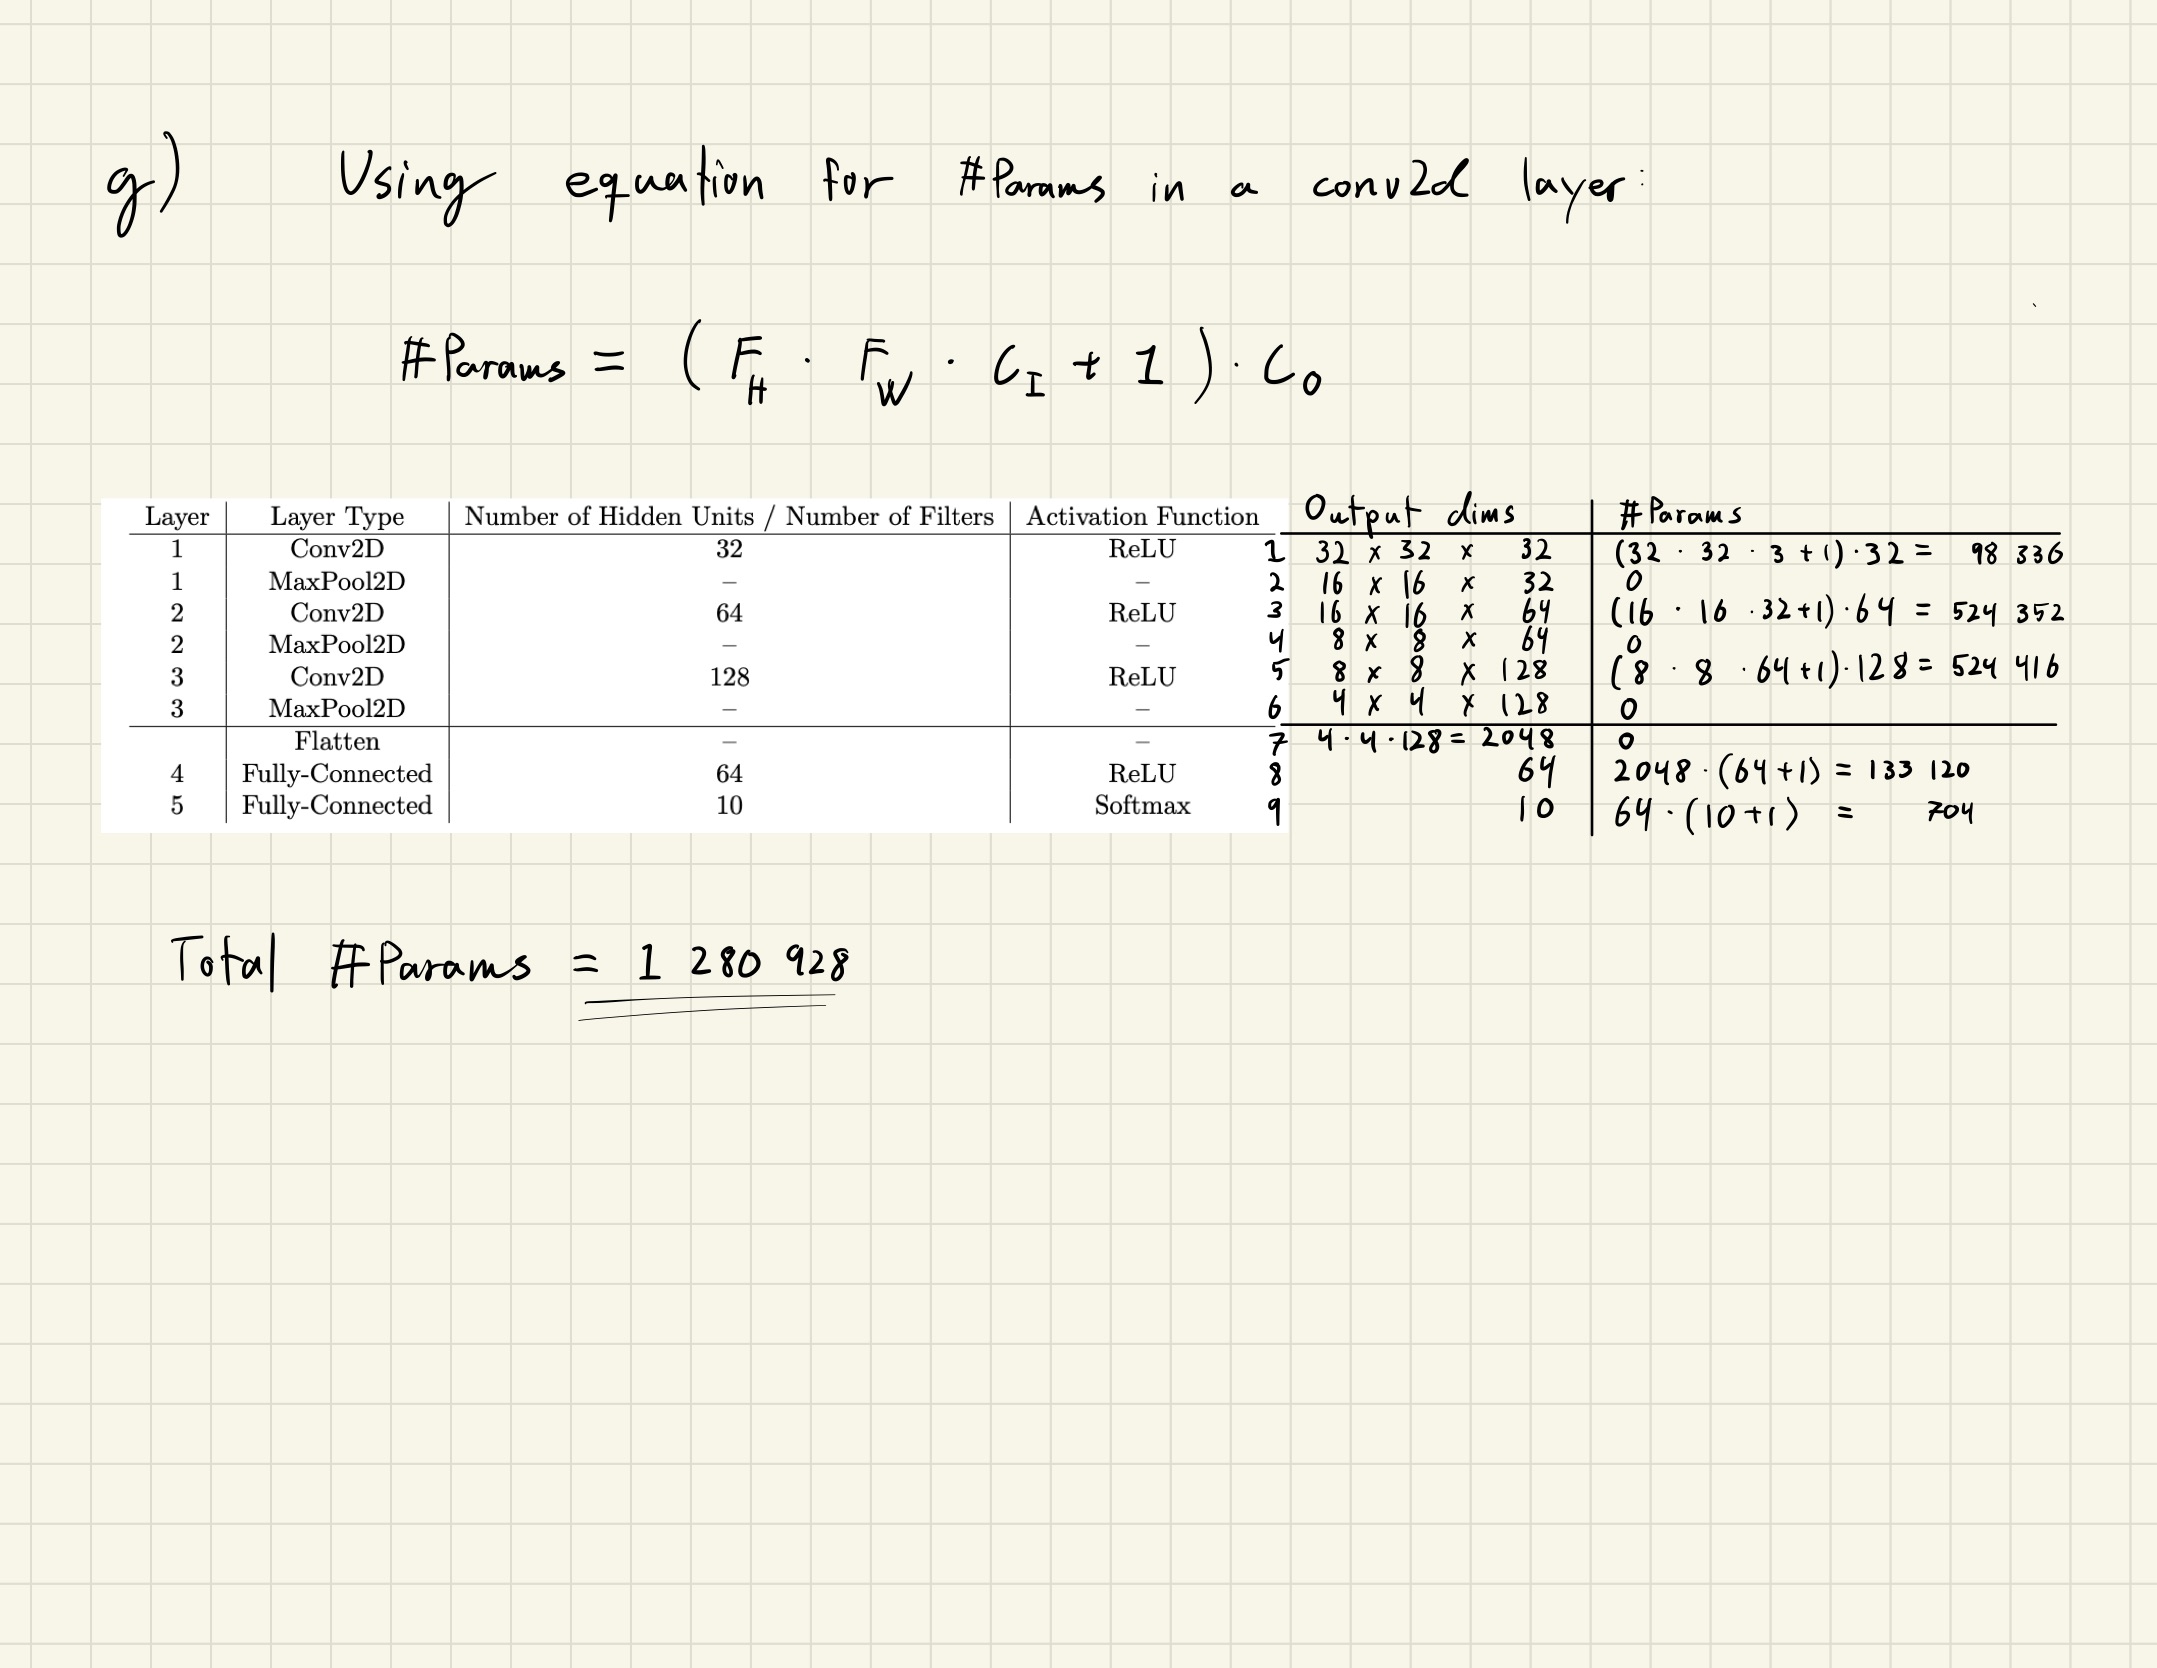 g) Using equation for #Params in a conv2d layer:
#Params = ( F_H · F_W · C_I + 1 ) · C_O
Layer Layer Type Number of Hidden Units / Number of Filters Activation Function Output dims #Params
1 Conv2D 32 ReLU 1 32 x 32 x 32 (32 · 32 · 3 + 1) · 32 = 98 336
1 MaxPool2D – – 2 16 x 16 x 32 0
2 Conv2D 64 ReLU 3 16 x 16 x 64 (16 · 16 · 32 + 1) · 64 = 524 352
2 MaxPool2D – – 4 8 x 8 x 64 0
3 Conv2D 128 ReLU 5 8 x 8 x 128 (8 · 8 · 64 + 1) · 128 = 524 416
3 MaxPool2D – – 6 4 x 4 x 128 0
Flatten – – 7 4 · 4 · 128 = 2048 0
4 Fully-Connected 64 ReLU 8 64 2048 · (64 + 1) = 133 120
5 Fully-Connected 10 Softmax 9 10 64 · (10 + 1) = 704
Total #Params = 1 280 928